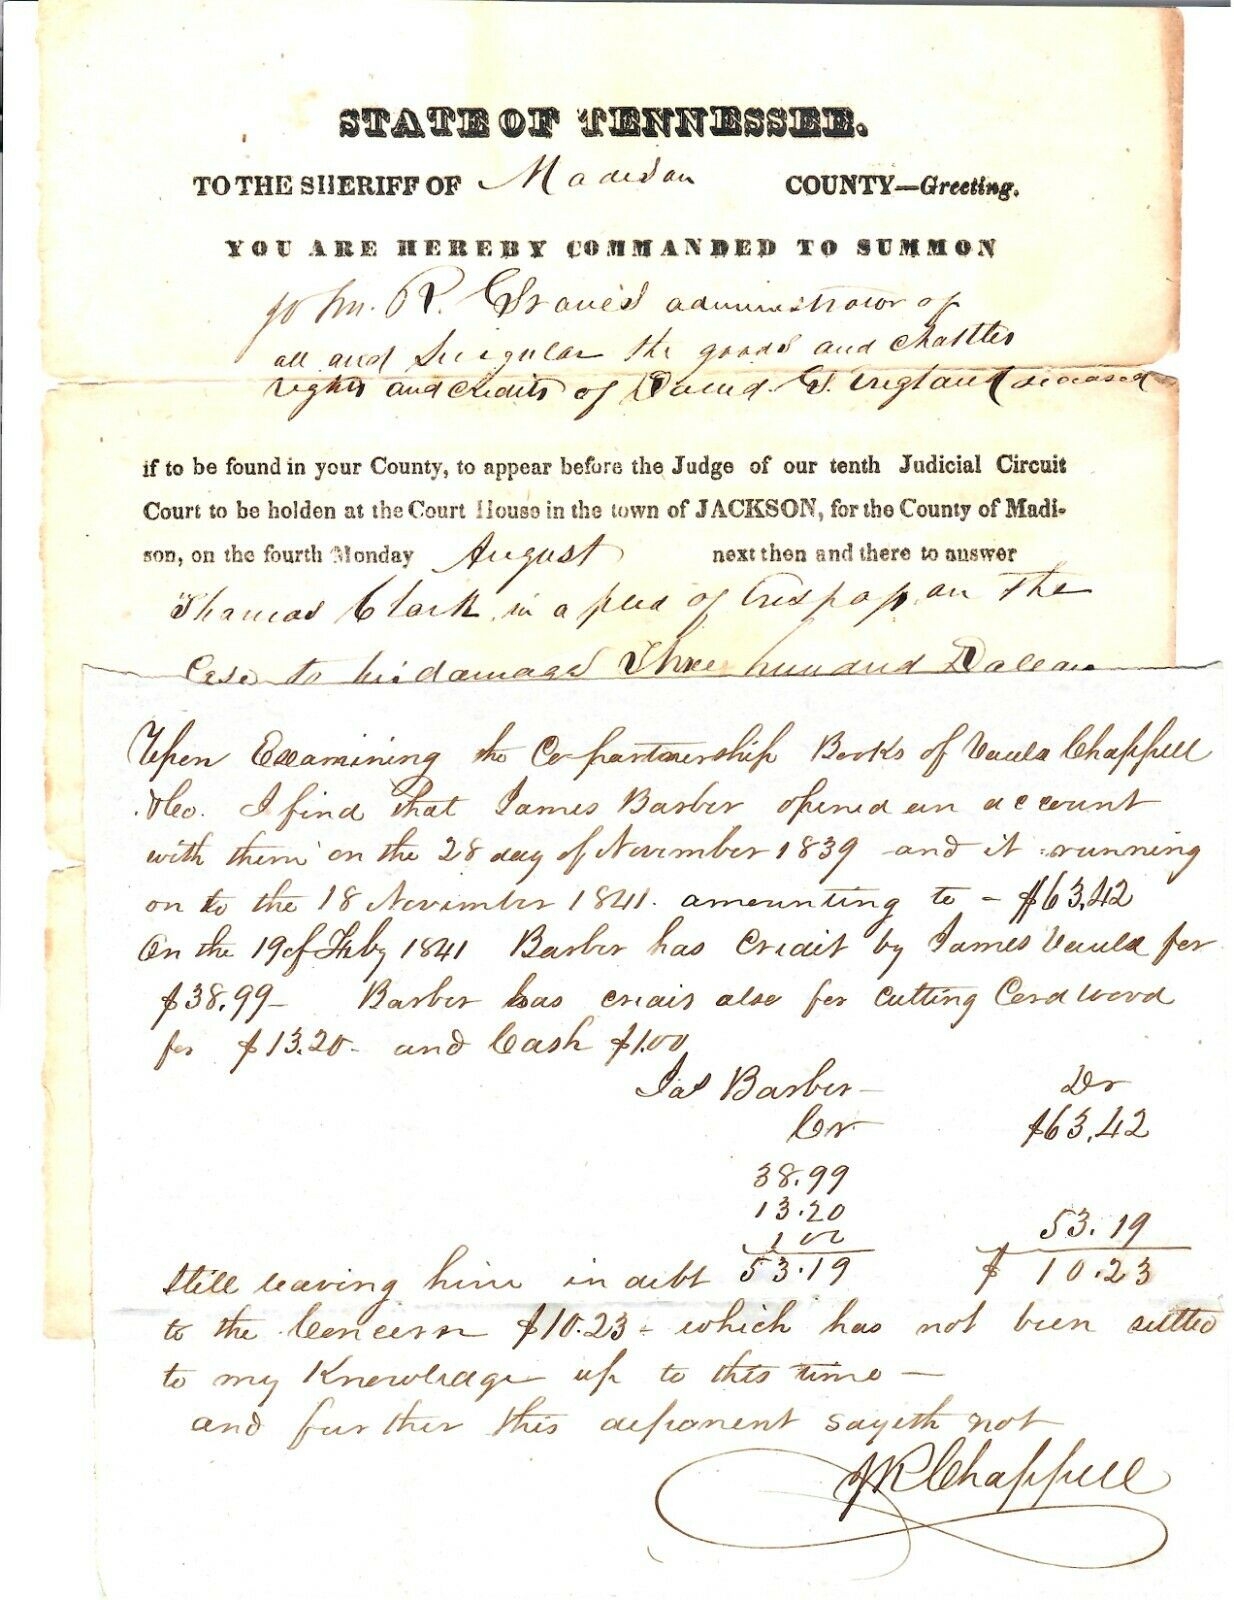 STATE OF TENNESSEE.
TO THE SHERIFF OF Madison COUNTY—Greeting.
YOU ARE HEREBY COMMANDED TO SUMMON
John. R. Graves administrator of
all and singular the goods and chattles
rights and credits of David G. England deceased
if to be found in your County, to appear before the Judge of our tenth Judicial Circuit
Court to be holden at the Court House in the town of JACKSON, for the County of Madi-
son, on the fourth Monday August next then and there to answer
Thomas Clark in a plea of Trespass on The
Case to his damage Three hundred Dollars
Upon Examining the Co-partnership Books of Vaulx Chappell
& Co. I find that James Barber opened an account
with them on the 28 day of November 1839 and it running
on to the 18 November 1841. amounting to - $63,42
On the 19 of Feby 1841 Barber has Credit by James Vaulx for
$38.99- Barber has credit also for cutting Cord wood
for $13.20- and Cash $1.00
Jas Barber- Dr
Cr $63,42
38.99
13.20 53.19
1 00
Still leaving him in debt 53.19 $ 10.23
to the Concern $10.23 - which has not been settled
to my Knowledge up to this time —
and further this deponent sayeth not
JR Chappell